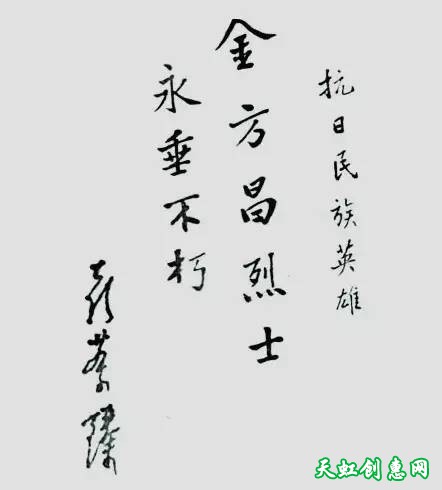 抗日民族英雄
金方昌烈士
永垂不朽
聂荣臻
天虹创惠网